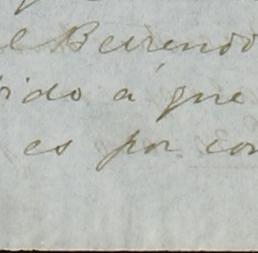 el Berrendo
bido á que
es por con